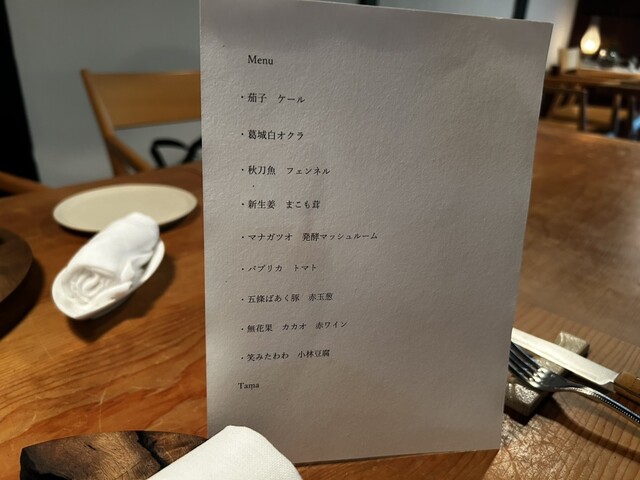 Menu
・茄子　ケール
・葛城白オクラ
・秋刀魚　フェンネル
・新生姜　まこも茸
・マナガツオ　発酵マッシュルーム
・パプリカ　トマト
・五條ばあく豚　赤玉葱
・無花果　カカオ　赤ワイン
・笑みたわわ　小林豆腐
Tama